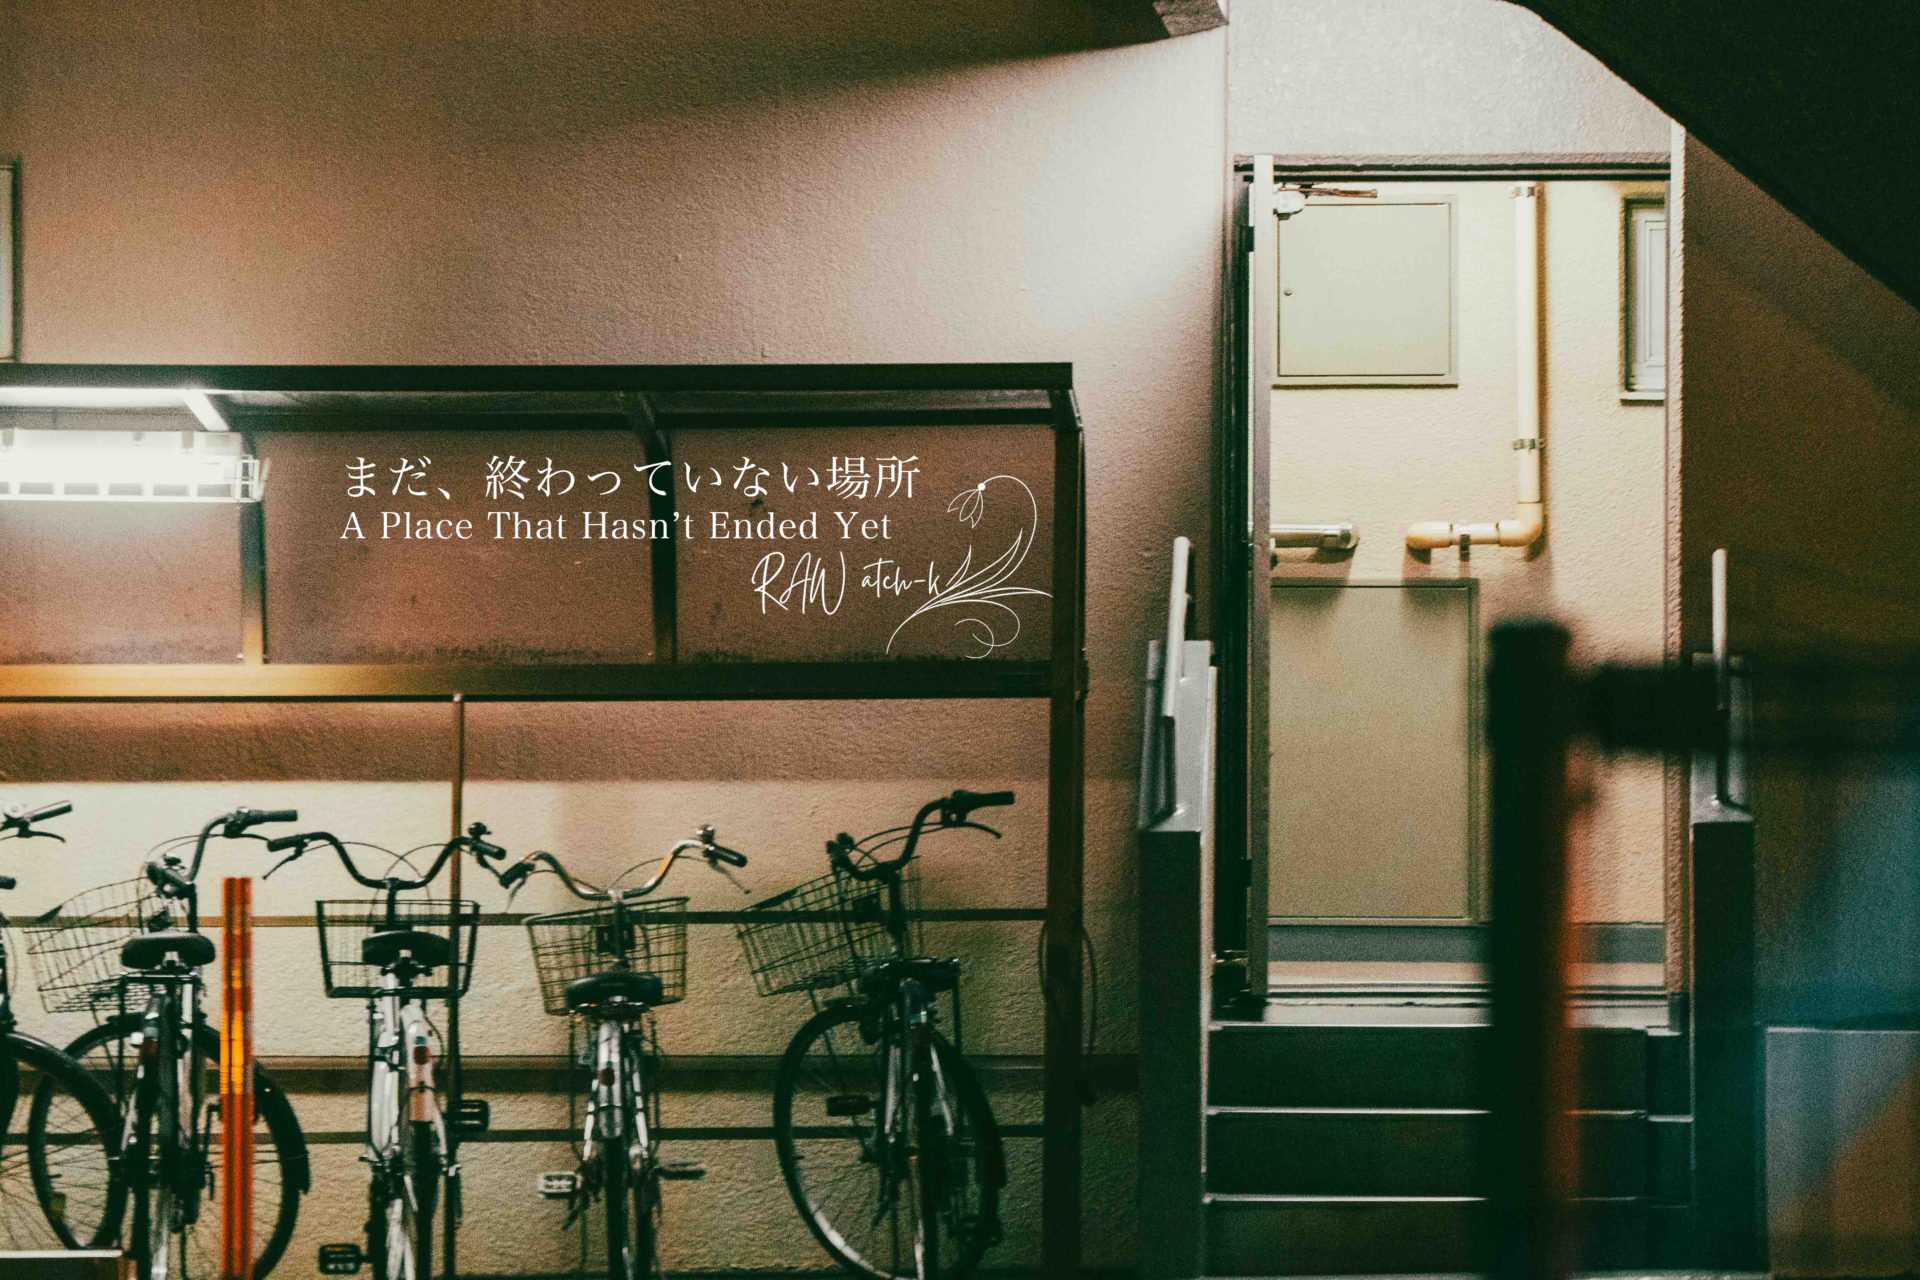 まだ、終わっていない場所
A Place That Hasn’t Ended Yet
RAW atch-k